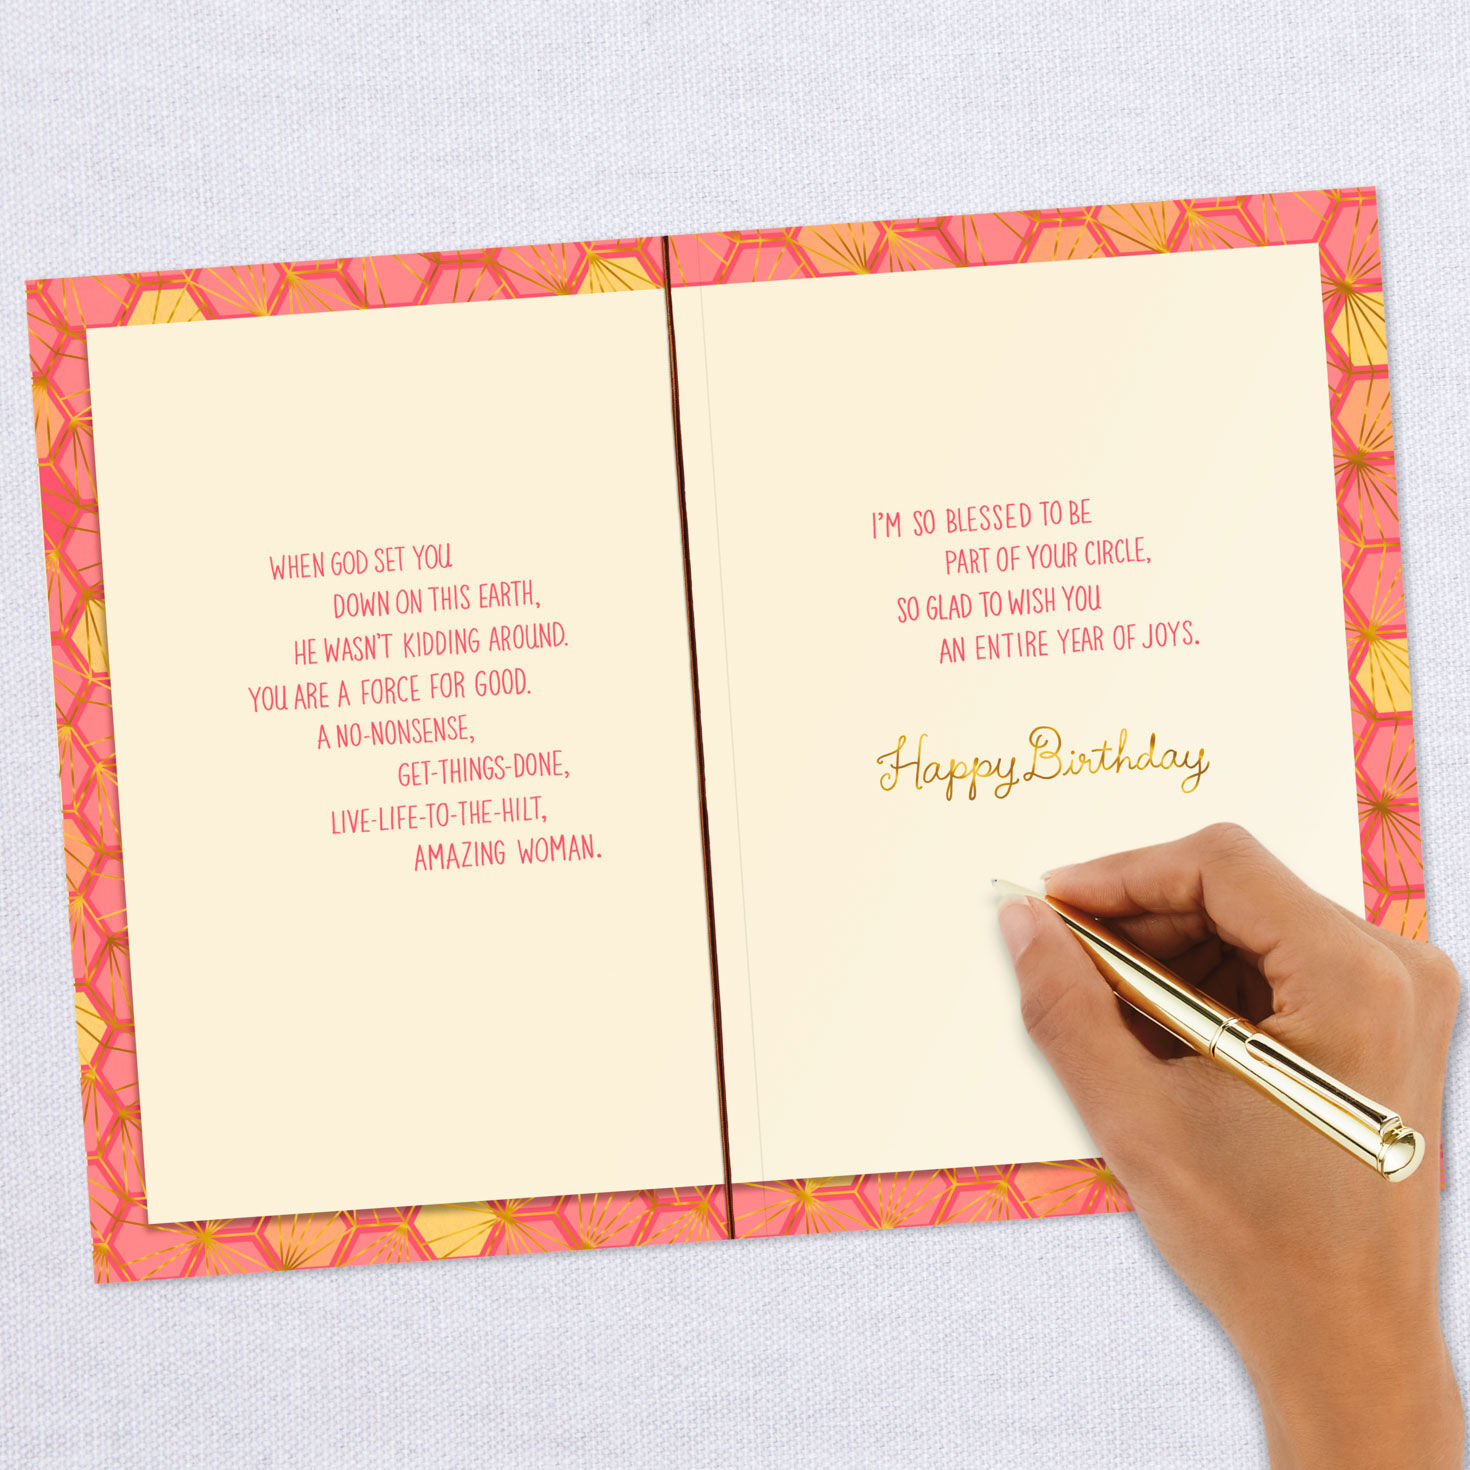 WHEN GOD SET YOU
DOWN ON THIS EARTH,
HE WASN'T KIDDING AROUND.
YOU ARE A FORCE FOR GOOD.
A NO-NONSENSE,
GET-THINGS-DONE,
LIVE-LIFE-TO-THE-HILT,
AMAZING WOMAN.
I'M SO BLESSED TO BE
PART OF YOUR CIRCLE,
SO GLAD TO WISH YOU
AN ENTIRE YEAR OF JOYS.
Happy Birthday